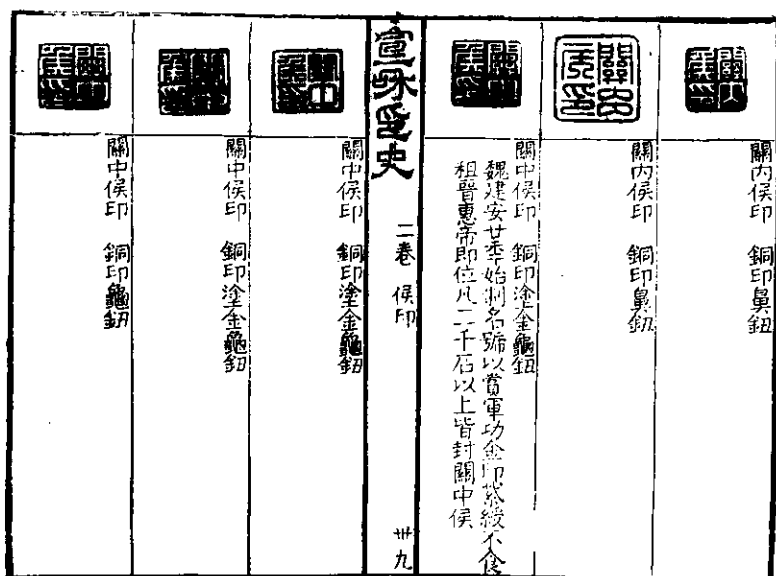 關内侯印　銅印鼻鈕
關内侯印　銅印鼻鈕
關中侯印　銅印塗金龜鈕
魏建安廿季始制名號以賞軍功金印紫綬不食
租晉惠帝即位凡二千石以上皆封關中侯
宣和印史　二卷　侯印　卅九
關中侯印　銅印塗金龜鈕
關中侯印　銅印塗金龜鈕
關中侯印　銅印龜鈕